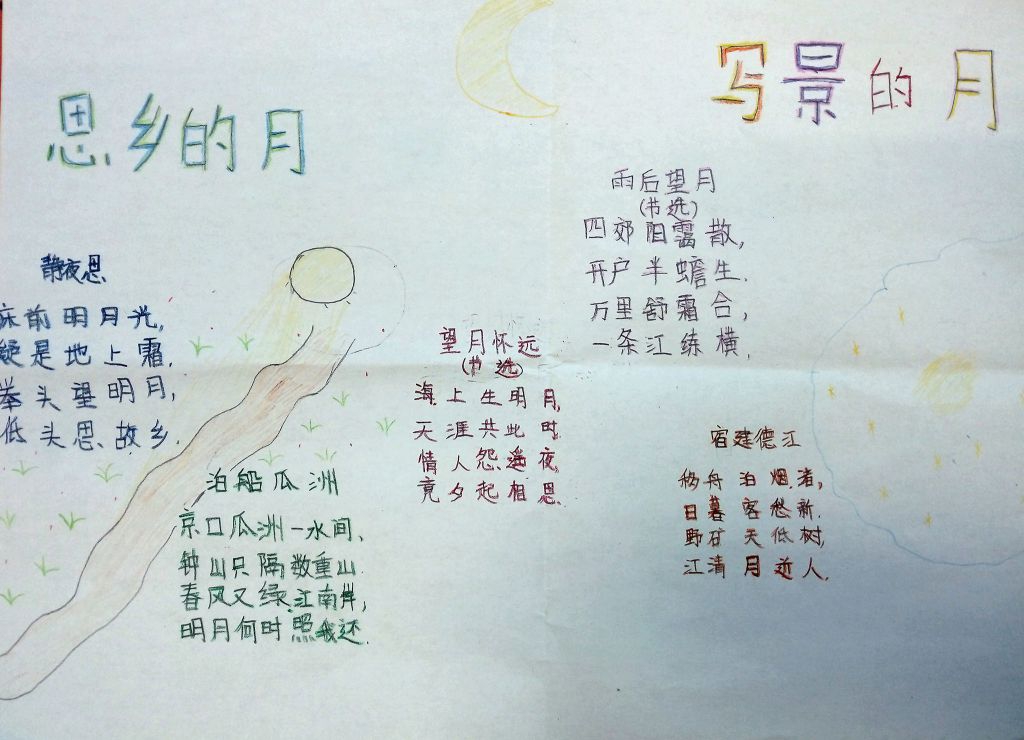 思乡的月
静夜思
床前明月光,
疑是地上霜.
举头望明月,
低头思故乡.
泊船瓜洲
京口瓜洲一水间、
钟山只隔数重山.
春风又绿江南岸,
明月何时照我还.
望月怀远
(节选)
海上生明月,
天涯共此时.
情人怨遥夜,
竟夕起相思.
写景的月
雨后望月
(节选)
四郊阴霭散,
开户半蟾生.
万里舒霜合,
一条江练横.
宿建德江
移舟泊烟渚,
日暮客愁新.
野矿天低树,
江清月近人.